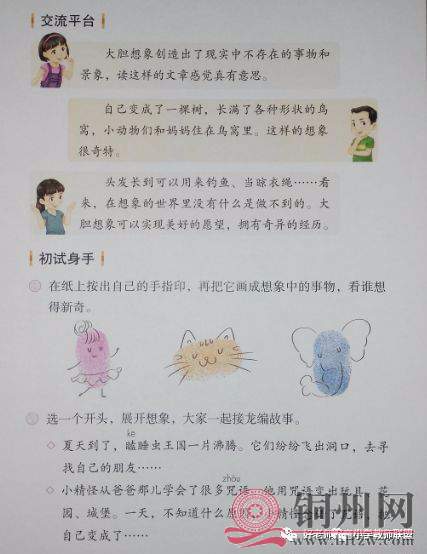 交流平台
大胆想象创造出了现实中不存在的事物和
景象，读这样的文章感觉真有意思。
自己变成了一棵树，长满了各种形状的鸟
窝，小动物们和妈妈住在鸟窝里。这样的想象
很奇特。
头发长到可以用来钓鱼、当晾衣绳……看
来，在想象的世界里没有什么是做不到的。大
胆想象可以实现美好的愿望，拥有奇异的经历。
初试身手
在纸上按出自己的手指印，再把它画成想象中的事物，看谁想
得新奇。
选一个开头，展开想象，大家一起接龙编故事。
kē
◇ 夏天到了，瞌睡虫王国一片沸腾。它们纷纷飞出洞口，去寻
找自己的朋友……
zhòu
◇ 小精怪从爸爸那儿学会了很多咒语，他用咒语变出玩具、花
园、城堡。一天，不知道什么原因，小精怪
自己变成了……
铜州网